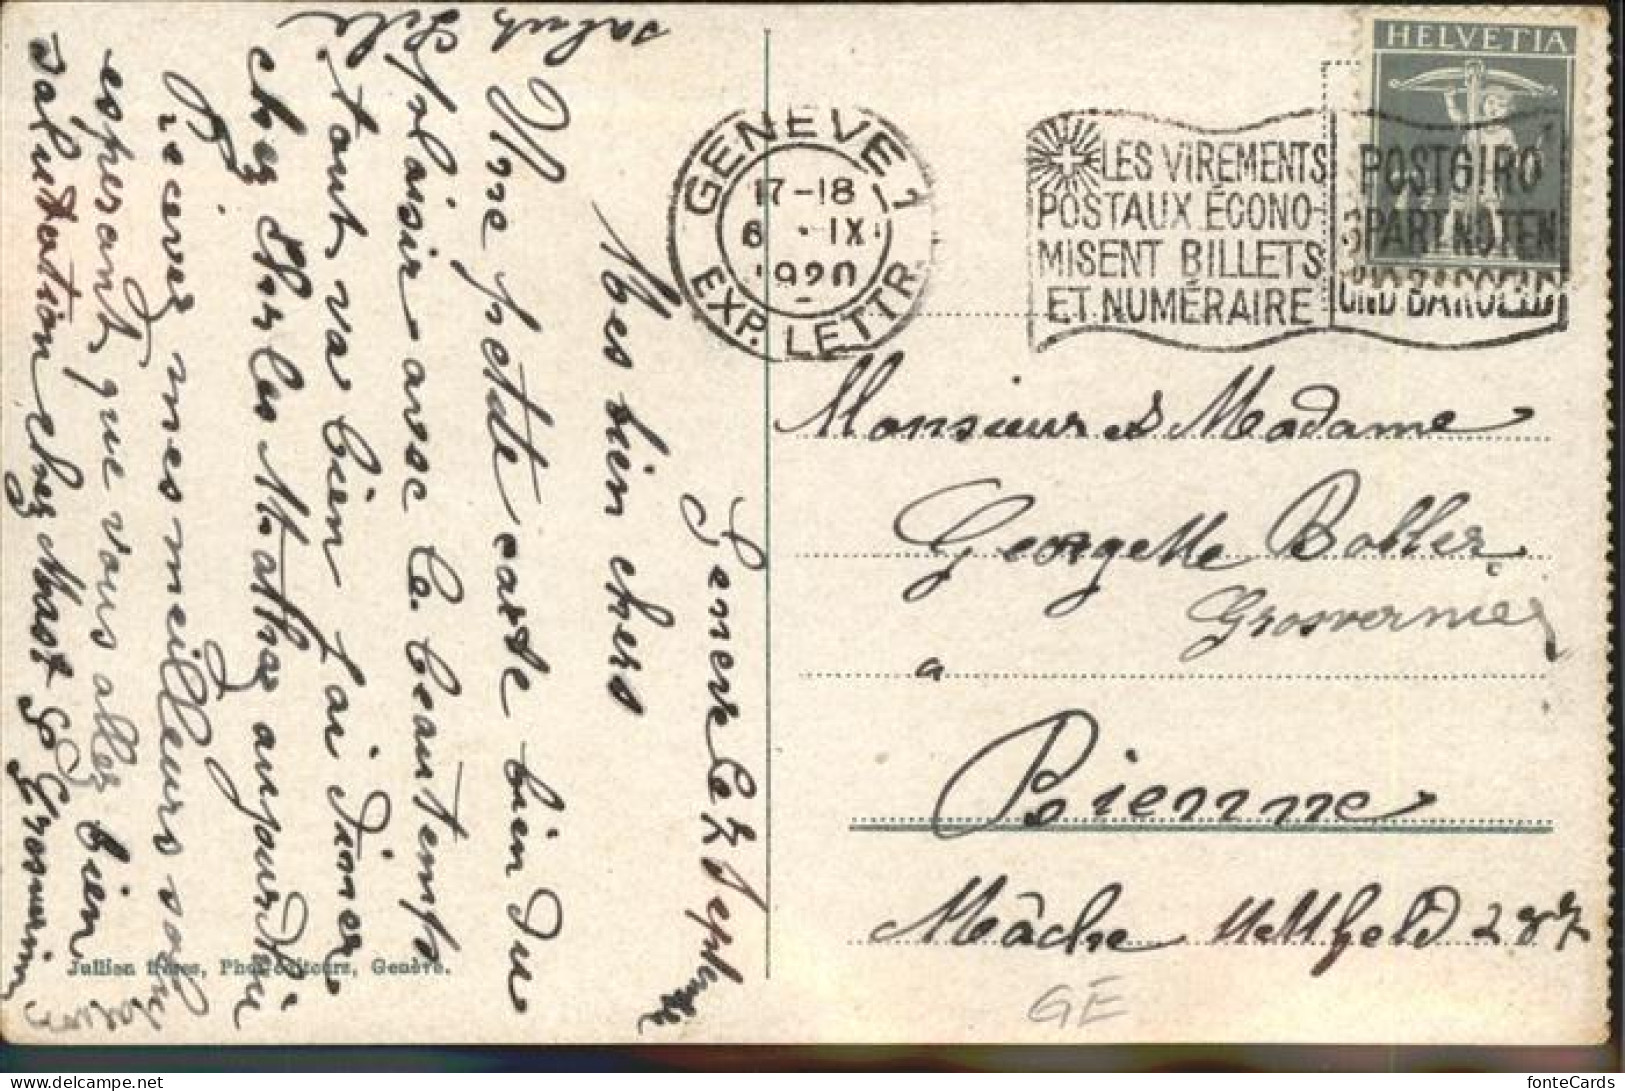 HELVETIA
GENÈVE 1
17-18
6 . IX
1920
EXP. LETTR.
LES ViREMENTS
POSTAUX ÉCONO-
MISENT BILLETS
ET NUMÉRAIRE
POSTGIRO
SPART NOTEN
UND BARGELD
Monsieur et Madame
Georgette Bobller
Grosvernier
a
Bienne
Mâche 287
GE
Genève le 7 Septembre
Mes bien chers
Une petite carte bien du
plaisir avec le beau temps
tout va bien j'ai diner
chez les Mathey aujourd'hui
Recevez mes meilleurs
espérant que vous allez bien
salutation chez
saluts
Jullien frères, Photo-éditeurs, Genève.
fonteCards